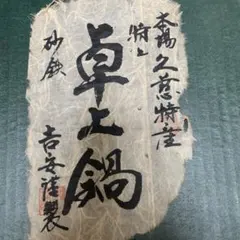 本場久慈特産
特上
卓上鍋
砂鉄
吉安謹製